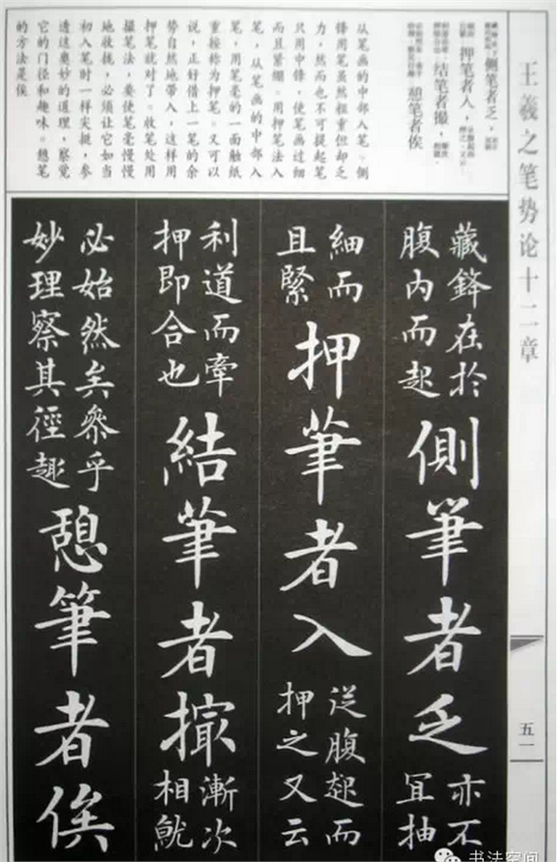 王羲之笔势论十二章
侧笔者乏，
押笔者入，
结笔者撮，
憩笔者俟
从笔画的中部入笔。侧
锋用笔虽然粗重但却乏
力，然而也不可提起笔
只用中锋，使笔画过细
而且紧绷。用押笔法入
笔，从笔画的中部入
笔，用笔毫的一面触纸
重按称为押笔。又可以
说，正好借上一笔的余
势自然地带入，这样用
押笔就对了。收笔处用
撮笔法，要使笔毫慢慢
地收拢，必须让它如当
初入笔时一样尖挺，参
透这奥妙的道理，察觉
它的门径和趣味。憩笔
的方法是俟
藏鋒在於
腹内而起
側筆者乏
亦不
冝抽
細而
且緊
押筆者入
従腹起而
押之又云
利道而牽
押即合也
結筆者撮
漸次
相就
必始然矣叅乎
妙理察其徑趣
憩筆者俟
五一
书法空间